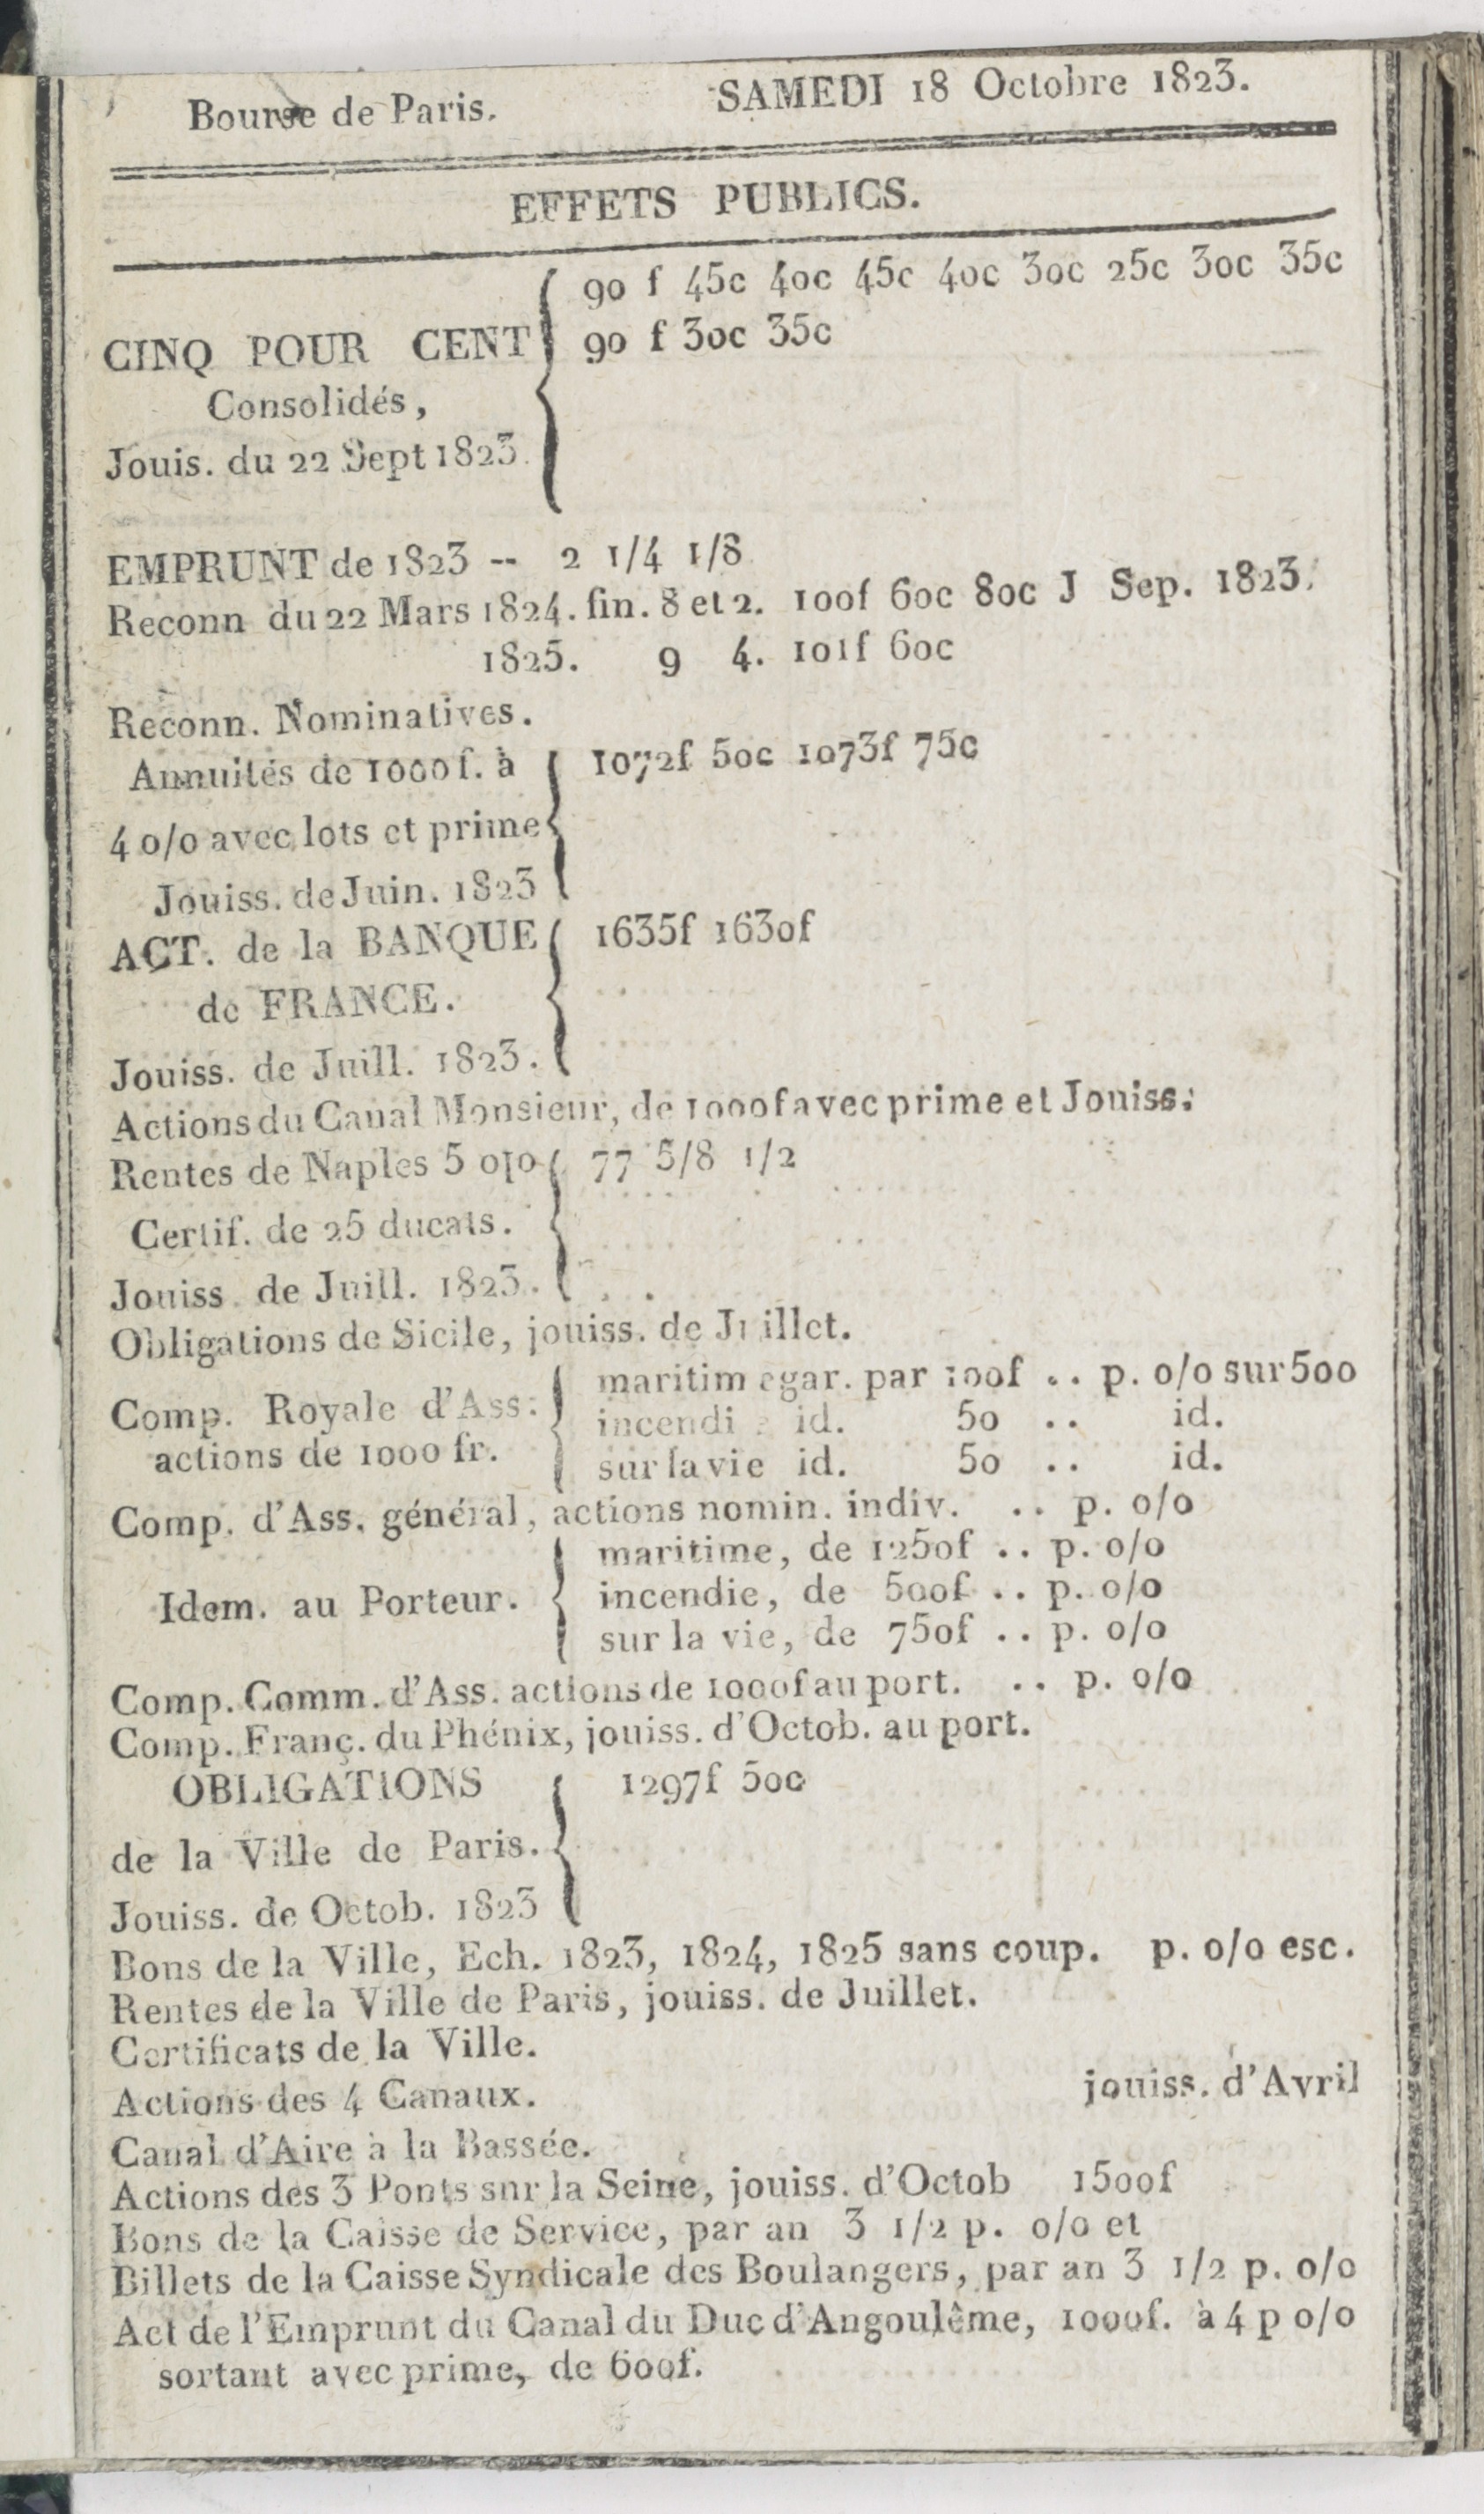 Bourse de Paris. SAMEDI 18 Octobre 1823.
EFFETS PUBLICS.
90 f 45c 40c 45c 40c 30c 25c 30c 35c
CINQ POUR CENT 90 f 30c 35c
Consolidés,
Jouis. du 22 Sept 1823.
EMPRUNT de 1823 -- 2 1/4 1/8
Reconn du 22 Mars 1824. fin. 8 et 2. 100f 60c 80c J Sep. 1823.
1825. 9 4. 101f 60c
Reconn. Nominatives.
Annuités de 1000 f. à 1072f 50c 1073f 75c
4 o/o avec lots et prime
Jouiss. de Juin. 1823
ACT. de la BANQUE 1635f 1630f
de FRANCE.
Jouiss. de Juill. 1823.
Actions du Canal Monsieur, de 1000f avec prime et Jouiss.
Rentes de Naples 5 o|o 77 5/8 1/2
Certif. de 25 ducats.
Jouiss. de Juill. 1823.
Obligations de Sicile, jouiss. de Juillet.
maritim egar. par 100f .. p. o/o sur 500
Comp. Royale d'Ass: incendi e id. 50 .. id.
actions de 1000 fr. sur la vie id. 50 .. id.
Comp. d'Ass. général, actions nomin. indiv. .. p. o/o
maritime, de 1250f .. p. o/o
Idem. au Porteur. incendie, de 500f .. p. o/o
sur la vie, de 750f .. p. o/o
Comp. Comm. d'Ass. actions de 1000f au port. .. p. o/o
Comp. Franç. du Phénix, jouiss. d'Octob. au port.
OBLIGATIONS 1297f 50c
de la Ville de Paris.
Jouiss. de Octob. 1823
Bons de la Ville, Ech. 1823, 1824, 1825 sans coup. p. o/o esc.
Rentes de la Ville de Paris, jouiss. de Juillet.
Certificats de la Ville.
Actions des 4 Canaux. jouiss. d'Avril
Canal d'Aire à la Bassée.
Actions des 3 Ponts sur la Seine, jouiss. d'Octob 1500f
Bons de la Caisse de Service, par an 3 1/2 p. o/o et
Billets de la Caisse Syndicale des Boulangers, par an 3 1/2 p. o/o
Act de l'Emprunt du Canal du Duc d'Angoulême, 1000f. à 4 p o/o
sortant avec prime, de 600f.